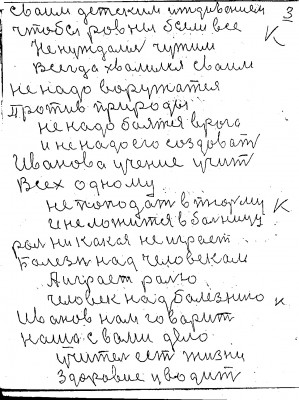 своим детским иждивением 3
чтобы ровни были все
Ненуждали чужим К
Всегда хвалился своим
не надо воружатся
Против природы
не надо боятся врога
и ненадо его создоват
Иванова учение учит
Всех одному
непоподат в тюрму К
и неложится в болницу
рол ни какая не играет
Болезн над человеком
А играет ролю
человек над болезнию к
Иванов нам говарит
наше с вами дело
учител ест жизни
Здоровие у водит